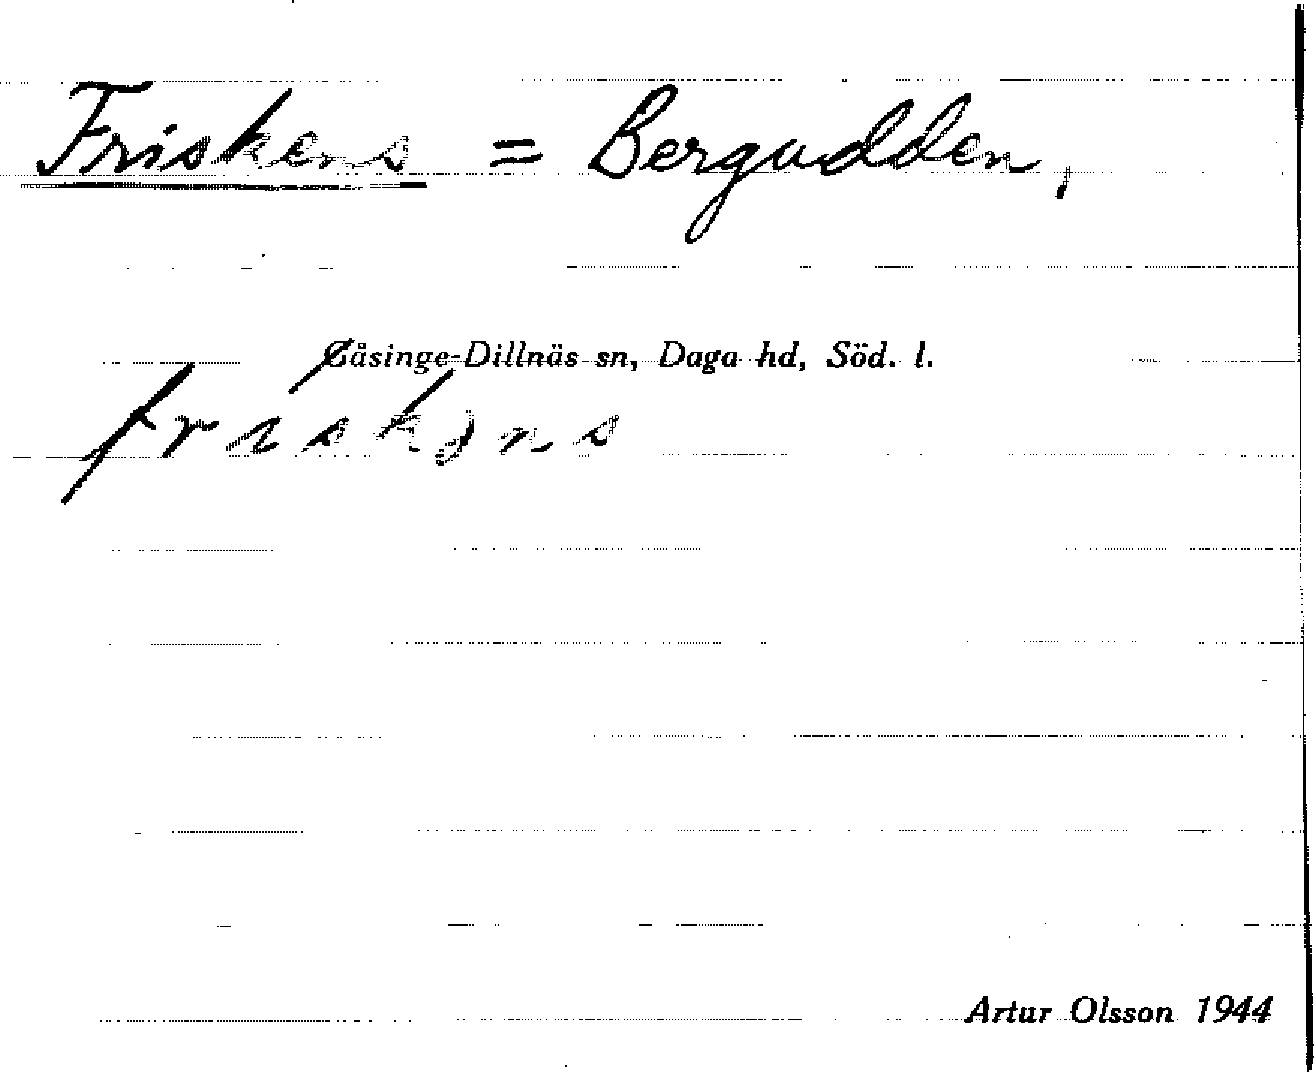 Friskens = Bergudden,
Gåsinge-Dillnäs sn, Daga hd, Söd. l.
frìskəns
Artur Olsson 1944